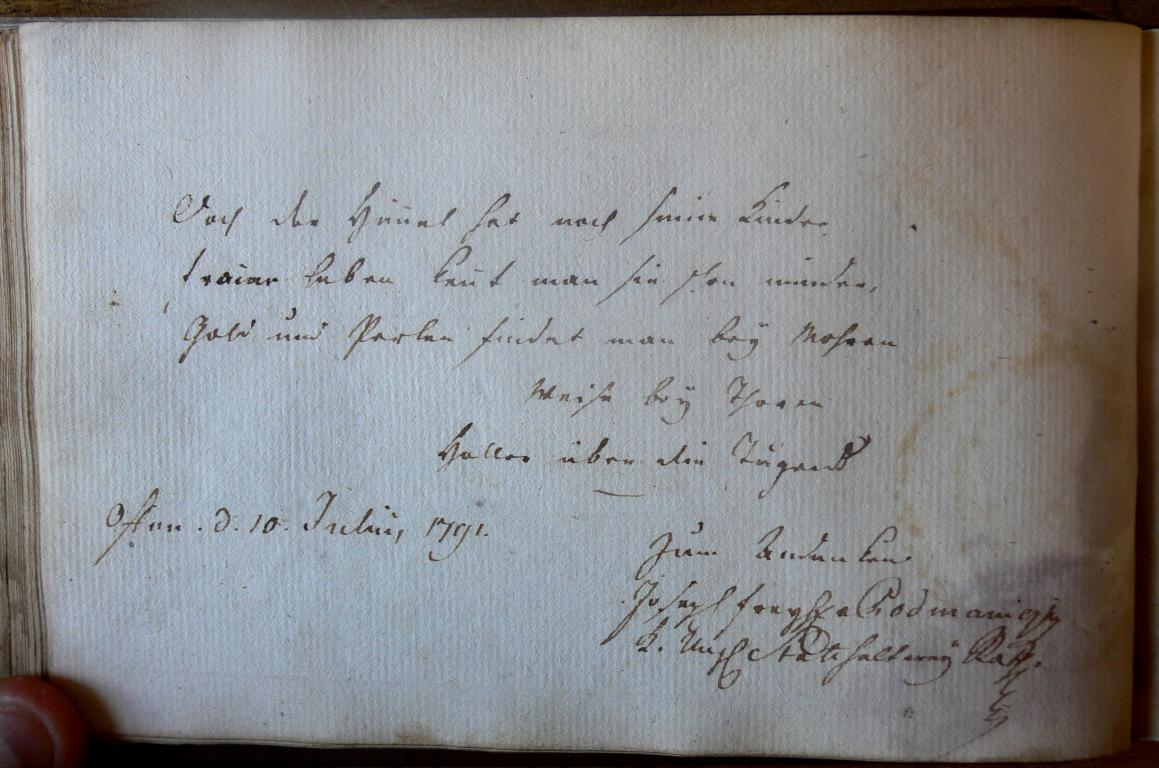 Doch der Himmel hat noch seine Kinder
fromme leben kennt man sie schon minder,
Gold und Perlen findet man bey Mohren
Weise bey Thoren
Haller über die Tugend
Ofen. d. 10. Julius, 1791.
Zum Andenken
Joseph Freyh. v Podmanizky
K. Ung. Statthalterey Rath.